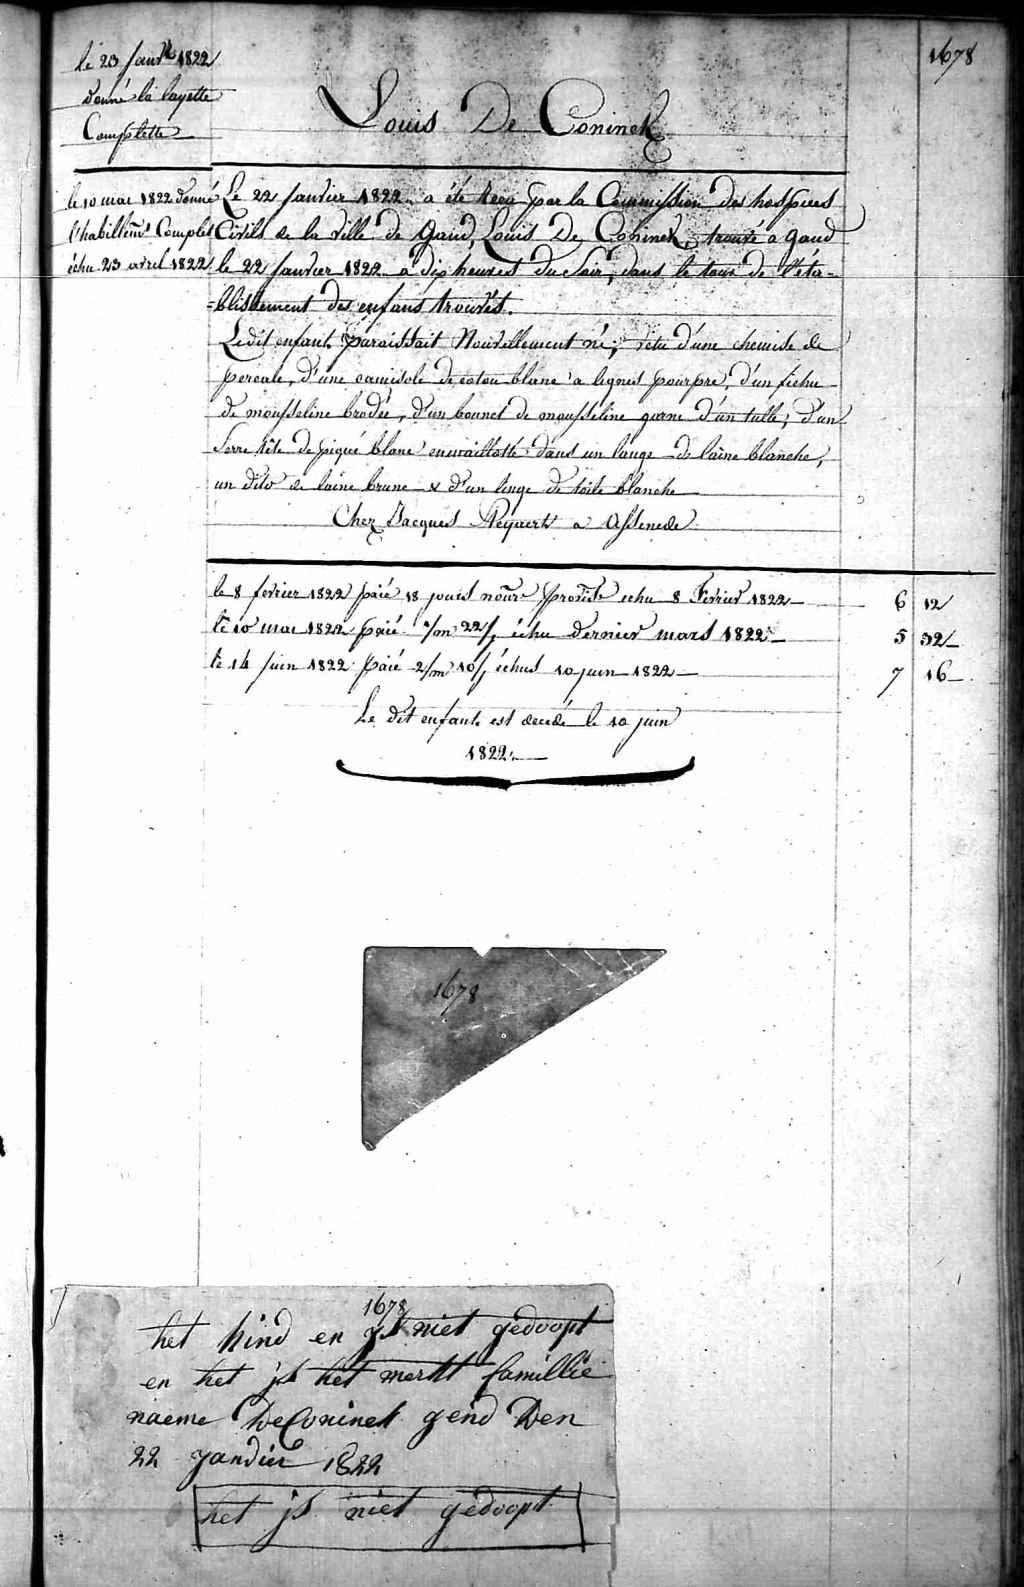 1678
le 23 Janvr 1822
donné la layette
Complette
Louis De Coninck
le 10 mai 1822 donné
l'habillemt Complet
échu 23 avril 1822
Le 22 Janvier 1822 a été Recu par la Commission des hospices
Civils de la ville de Gand, Louis De Coninck, trouvé a Gand
le 22 Janvier 1822 a dix heures du Soir, dans le tour de l'éta=
=blissement des enfans trouvés.
Ledit enfant paraissait Nouvellement né; vetu d'une chemise de
percale, d'une camisole de coton blanc a lignes pourpre, d'un fichu
de mousseline brodée, d'un bonnet de mousseline garni d'un tulle; d'un
Serre tête de piqué blanc emmaillotté dans un lange de laine blanche,
un dito de laine brune & d'un linge de toile blanche
Chez Jacques a Assenede
le 8 fevrier 1822 païé 18 jours nourre échu 8 Fevrier 1822 6 12
le 10 mai 1822 païé 1/m 22/j échu dernier mars 1822 5 32
le 14 Juin 1822 païé 2/m 10/j échus 10 juin 1822 7 16
Le dit enfant est decedé le 10 juin
1822.
1678
1678
het kind en jst niet gedoopt
en het jst het merkt famillie
naeme DeConinck gend Den
22 yandier 1822
het jst niet gedoopt